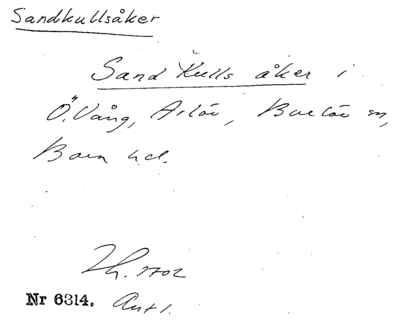 Sandkullsåker
Sand Kulls åker i
Ö. Vång, Arlöv, Burlöv sn,
Bara hd.
1702
Nr 6314. Ant 1.